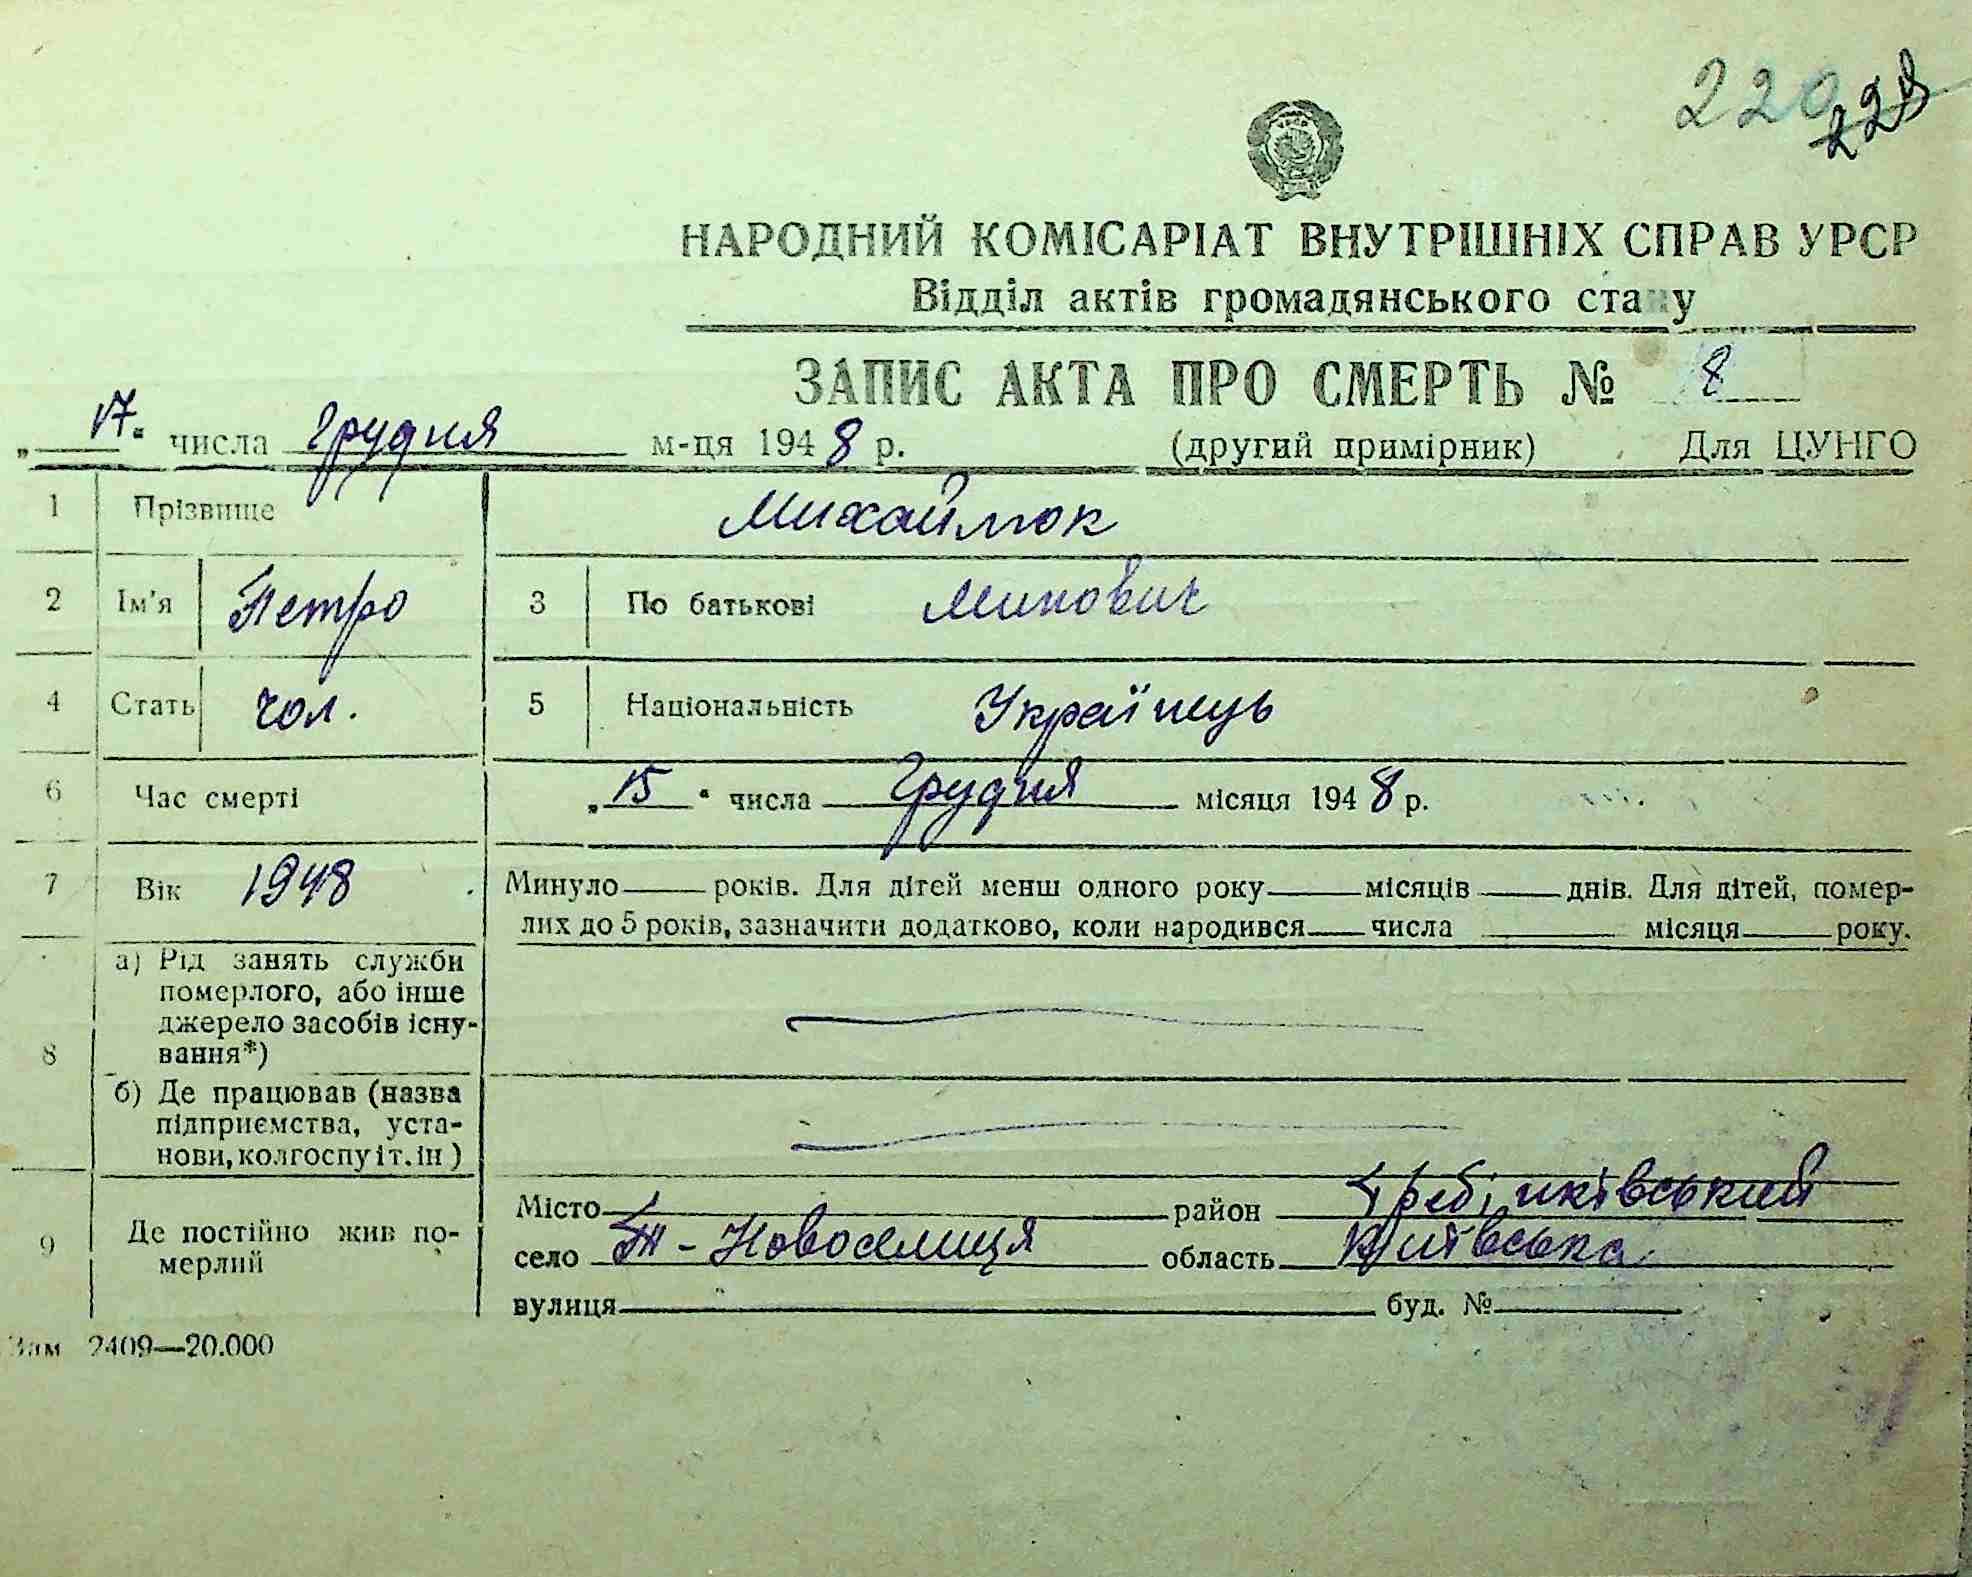 220 228
УРСР
НАРОДНИЙ КОМІСАРІАТ ВНУТРІШНІХ СПРАВ УРСР
Відділ актів громадянського стану
ЗАПИС АКТА ПРО СМЕРТЬ № 8
„17“ числа Грудня м-ця 1948 р. (другий примірник) Для ЦУНГО
1 Прізвище Михайлюк
2 Ім'я Петро 3 По батькові
4 Стать чол. 5 Національність Українець
6 Час смерті „15“ числа Грудня місяця 1948 р.
7 Вік 1948 Минуло — років. Для дітей менш одного року — місяців — днів. Для дітей, помер-
лих до 5 років, зазначити додатково, коли народився — числа — місяця — року.
8 а) Рід занять служби
померлого, або інше
джерело засобів існу-
вання*)
б) Де працював (назва
підприємства, уста-
нови, колгоспу і т. ін)
9 Де постійно жив по-
мерлий
Місто район Гребінківський
село - Новоселиця область Київська
вулиця буд. №
Зам 2409—20.000